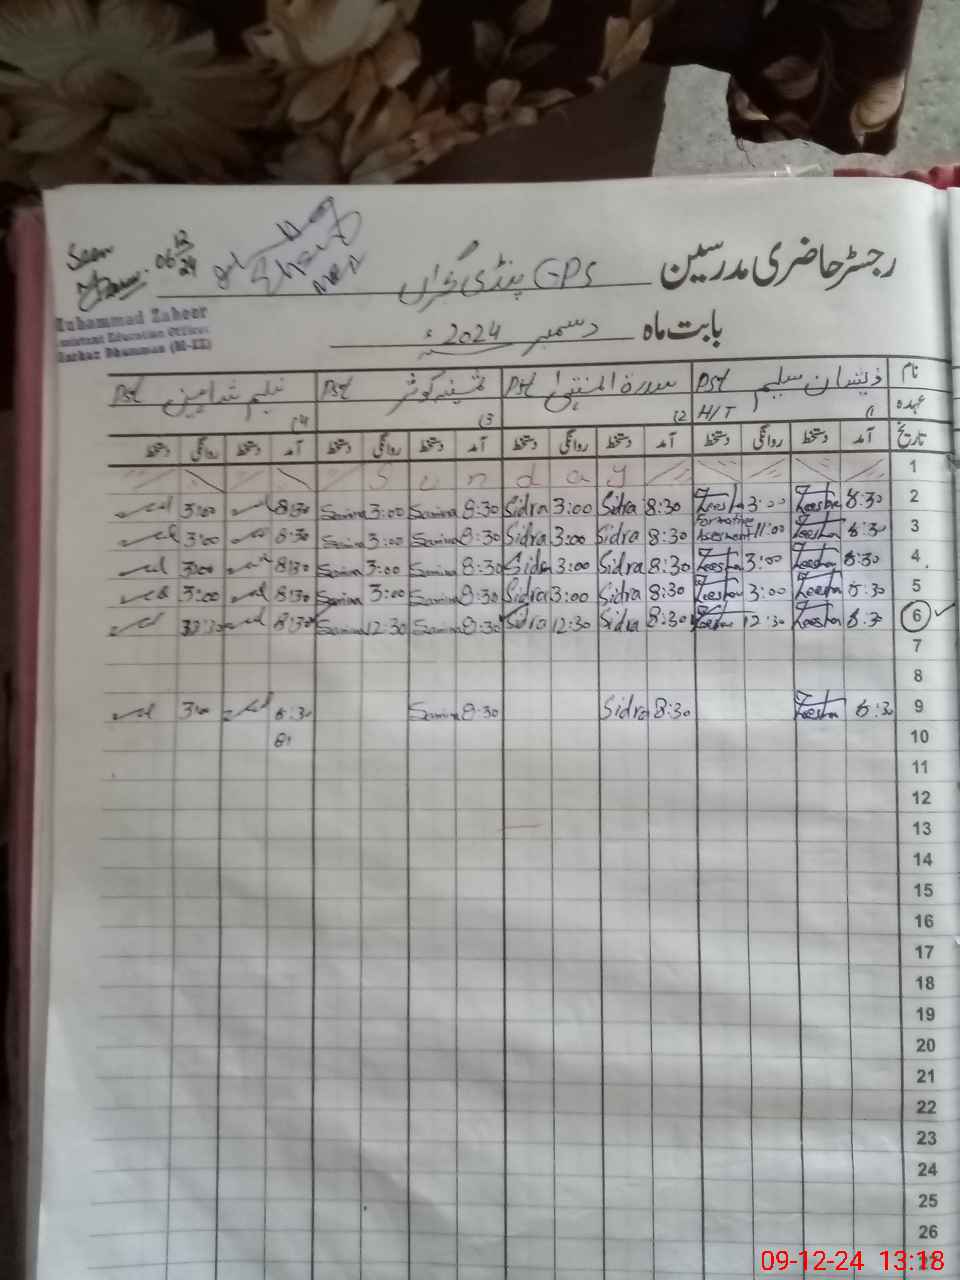 Seen
06 12/24
Muhammad Zaheer
Assistant Education Officer
Markaz Dhamman (M-EE)
رجسٹر حاضری مدرسین GPS پنڈی گجراں
بابت ماہ دسمبر 2024ء
نام ذیشان سلیم PST سدرۃ المنتہیٰ PST ثمینہ کوثر PST نیلم شاہین PST
عہدہ (1 H/T (2 (3 (4
تاریخ آمد دستخط روانگی دستخط آمد دستخط روانگی دستخط آمد دستخط روانگی دستخط آمد دستخط روانگی دستخط
1 Sunday
2 8:30 Zeesha 3:00 Zeesha 8:30 Sidra 3:00 Sidra 8:30 Samina 3:00 Samina 8:30 3:00
3 8:30 Zeesha 11:00 Formative Assesment 8:30 Sidra 3:00 Sidra 8:30 Samina 3:00 Samina 8:30 3:00
4 8:30 Zeesha 3:00 Zeesha 8:30 Sidra 3:00 Sidra 8:30 Samina 3:00 Samina 8:30 3:00
5 8:30 Zeesha 3:00 Zeesha 8:30 Sidra 3:00 Sidra 8:30 Samina 3:00 Samina 8:30 3:00
6 8:30 Zeesha 12:30 8:30 Sidra 12:30 Sidra 8:30 Samina 12:30 Samina 8:30
7
8
9 8:30 Zeesha 8:30 Sidra 8:30 Samina 8:30 3:00
10
11
12
13
14
15
16
17
18
19
20
21
22
23
24
25
26
27
09-12-24 13:18